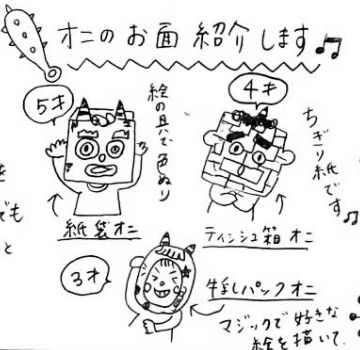 オニの お面 紹介 します♫
5才
絵の具で色ぬり
紙袋オニ
4才
ちぎり紙です♫
ティッシュ箱オニ
3才
牛乳パックオニ
マジックで 好きな
絵を描いて
を
でも
と